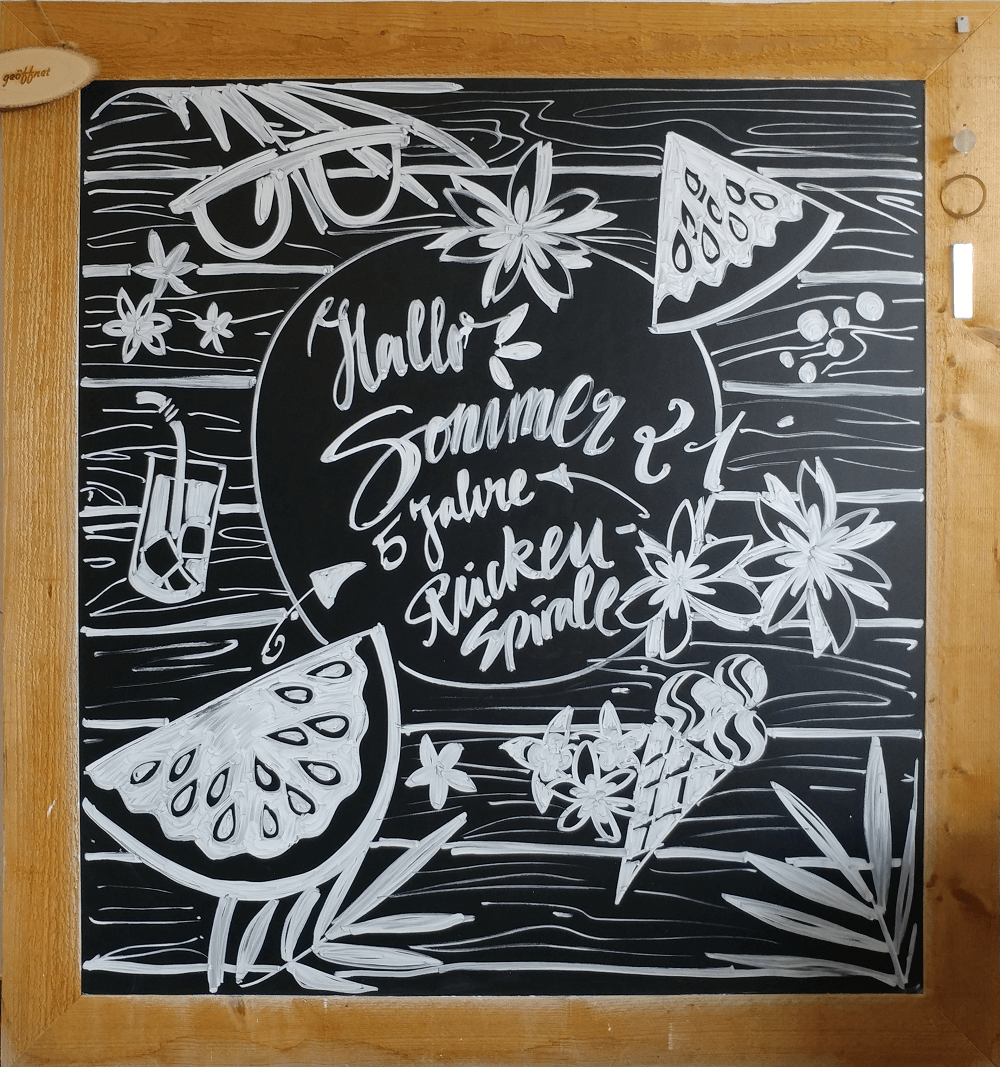 geöffnet
Hallo
Sommer 21
5 Jahre
Rücken-
spirale